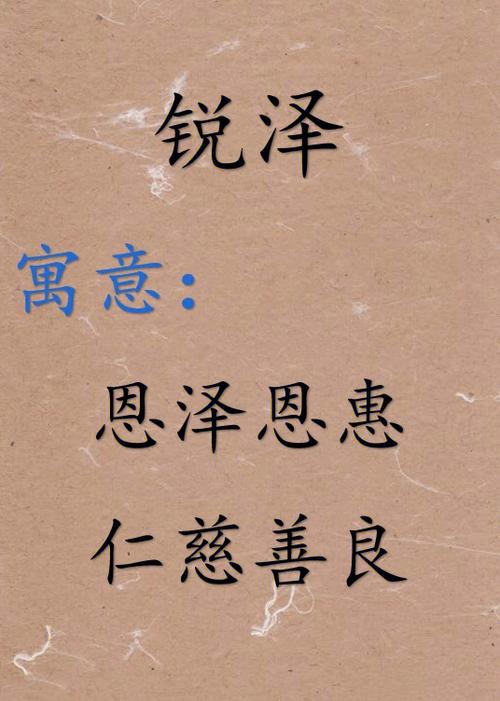 锐泽
寓意：
恩泽恩惠
仁慈善良